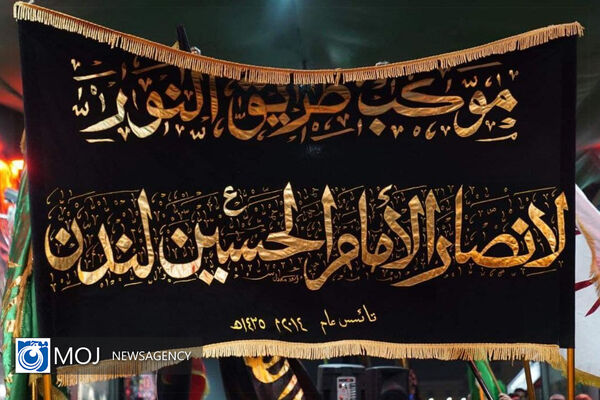 موكب طريق النور
لانصار الأمام الحسين ع لندن
تأسس عام ٢٠١٤م ١٤٣٥هـ
MOJ NEWSAGENCY